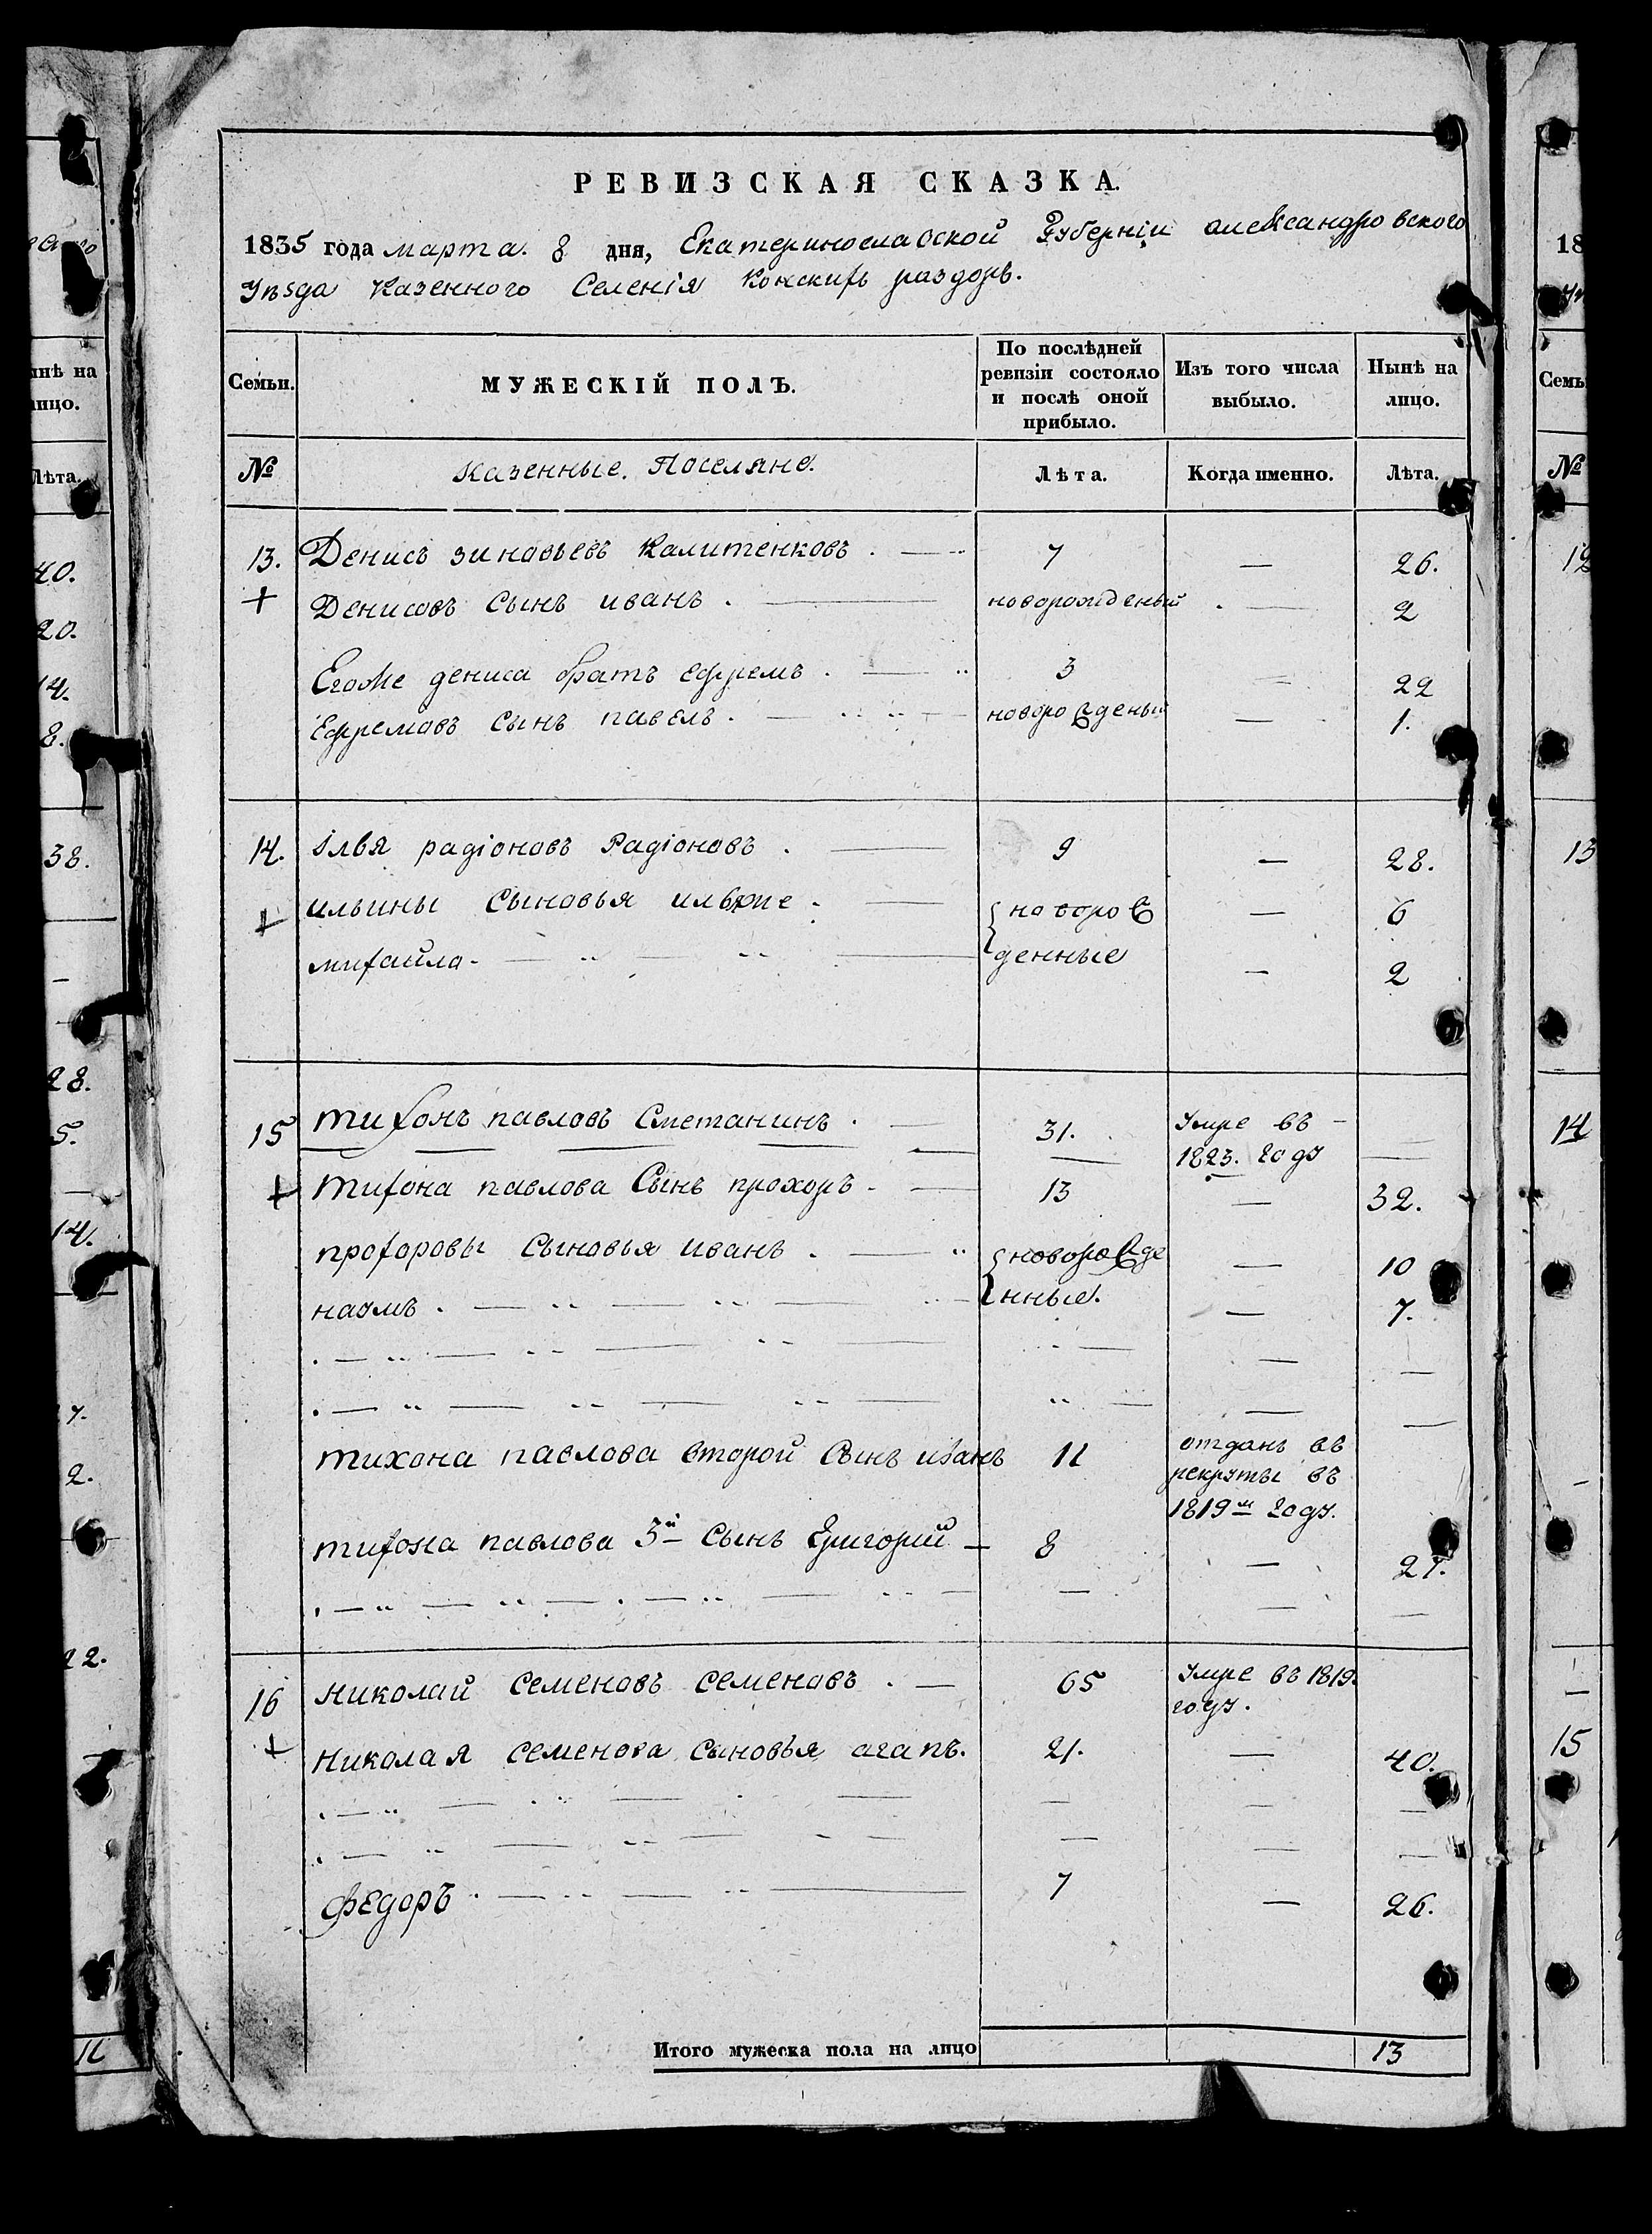 РЕВИЗСКАЯ СКАЗКА.
1835 года марта. 8 дня, Екатеринославской Губерніи александровского
Уѣзда Казенного Селенія Конскихъ раздоръ.
Семьи. МУЖЕСКІЙ ПОЛЪ. По послѣдней ревизіи состояло и послѣ оной прибыло. Изъ того числа выбыло. Нынѣ на лицо.
№ Казенные. Поселяне. Лѣта. Когда именно. Лѣта.
13. Денисъ зиновьевъ Калитенковъ . — 7 — 26.
+ Денисовъ сынъ иванъ . — новорожденый . — 2
Егоже дениса братъ ефремъ . — 3 — 22
Ефремовъ сынъ павелъ . — новорожденый — 1.
14. ілья радіоновъ Радіоновъ . — 9 — 28.
+ ильины сыновья илья же . — {новорож — 6
михайла . — денные — 2
15 тихонъ павловъ Сметанинъ . — 31. Умре въ — 1823. году —
+ тихона павлова Сынъ прохоръ . — 13 — 32.
прохоровы сыновья иванъ . — {новорожде — 10
наумъ . — нные. — 7.
тихона павлова второй Сынъ иванъ 11 отданъ въ
рекруты въ
1819м году.
тихона павлова 3й Сынъ Григорий — 8 — 27.
16 николай семеновъ семеновъ . — 65 Умре въ 1819.
году.
+ николая семенова сыновья агапъ. 21. — 40.
федоръ . — 7 — 26.
Итого мужеска пола на лицо 13